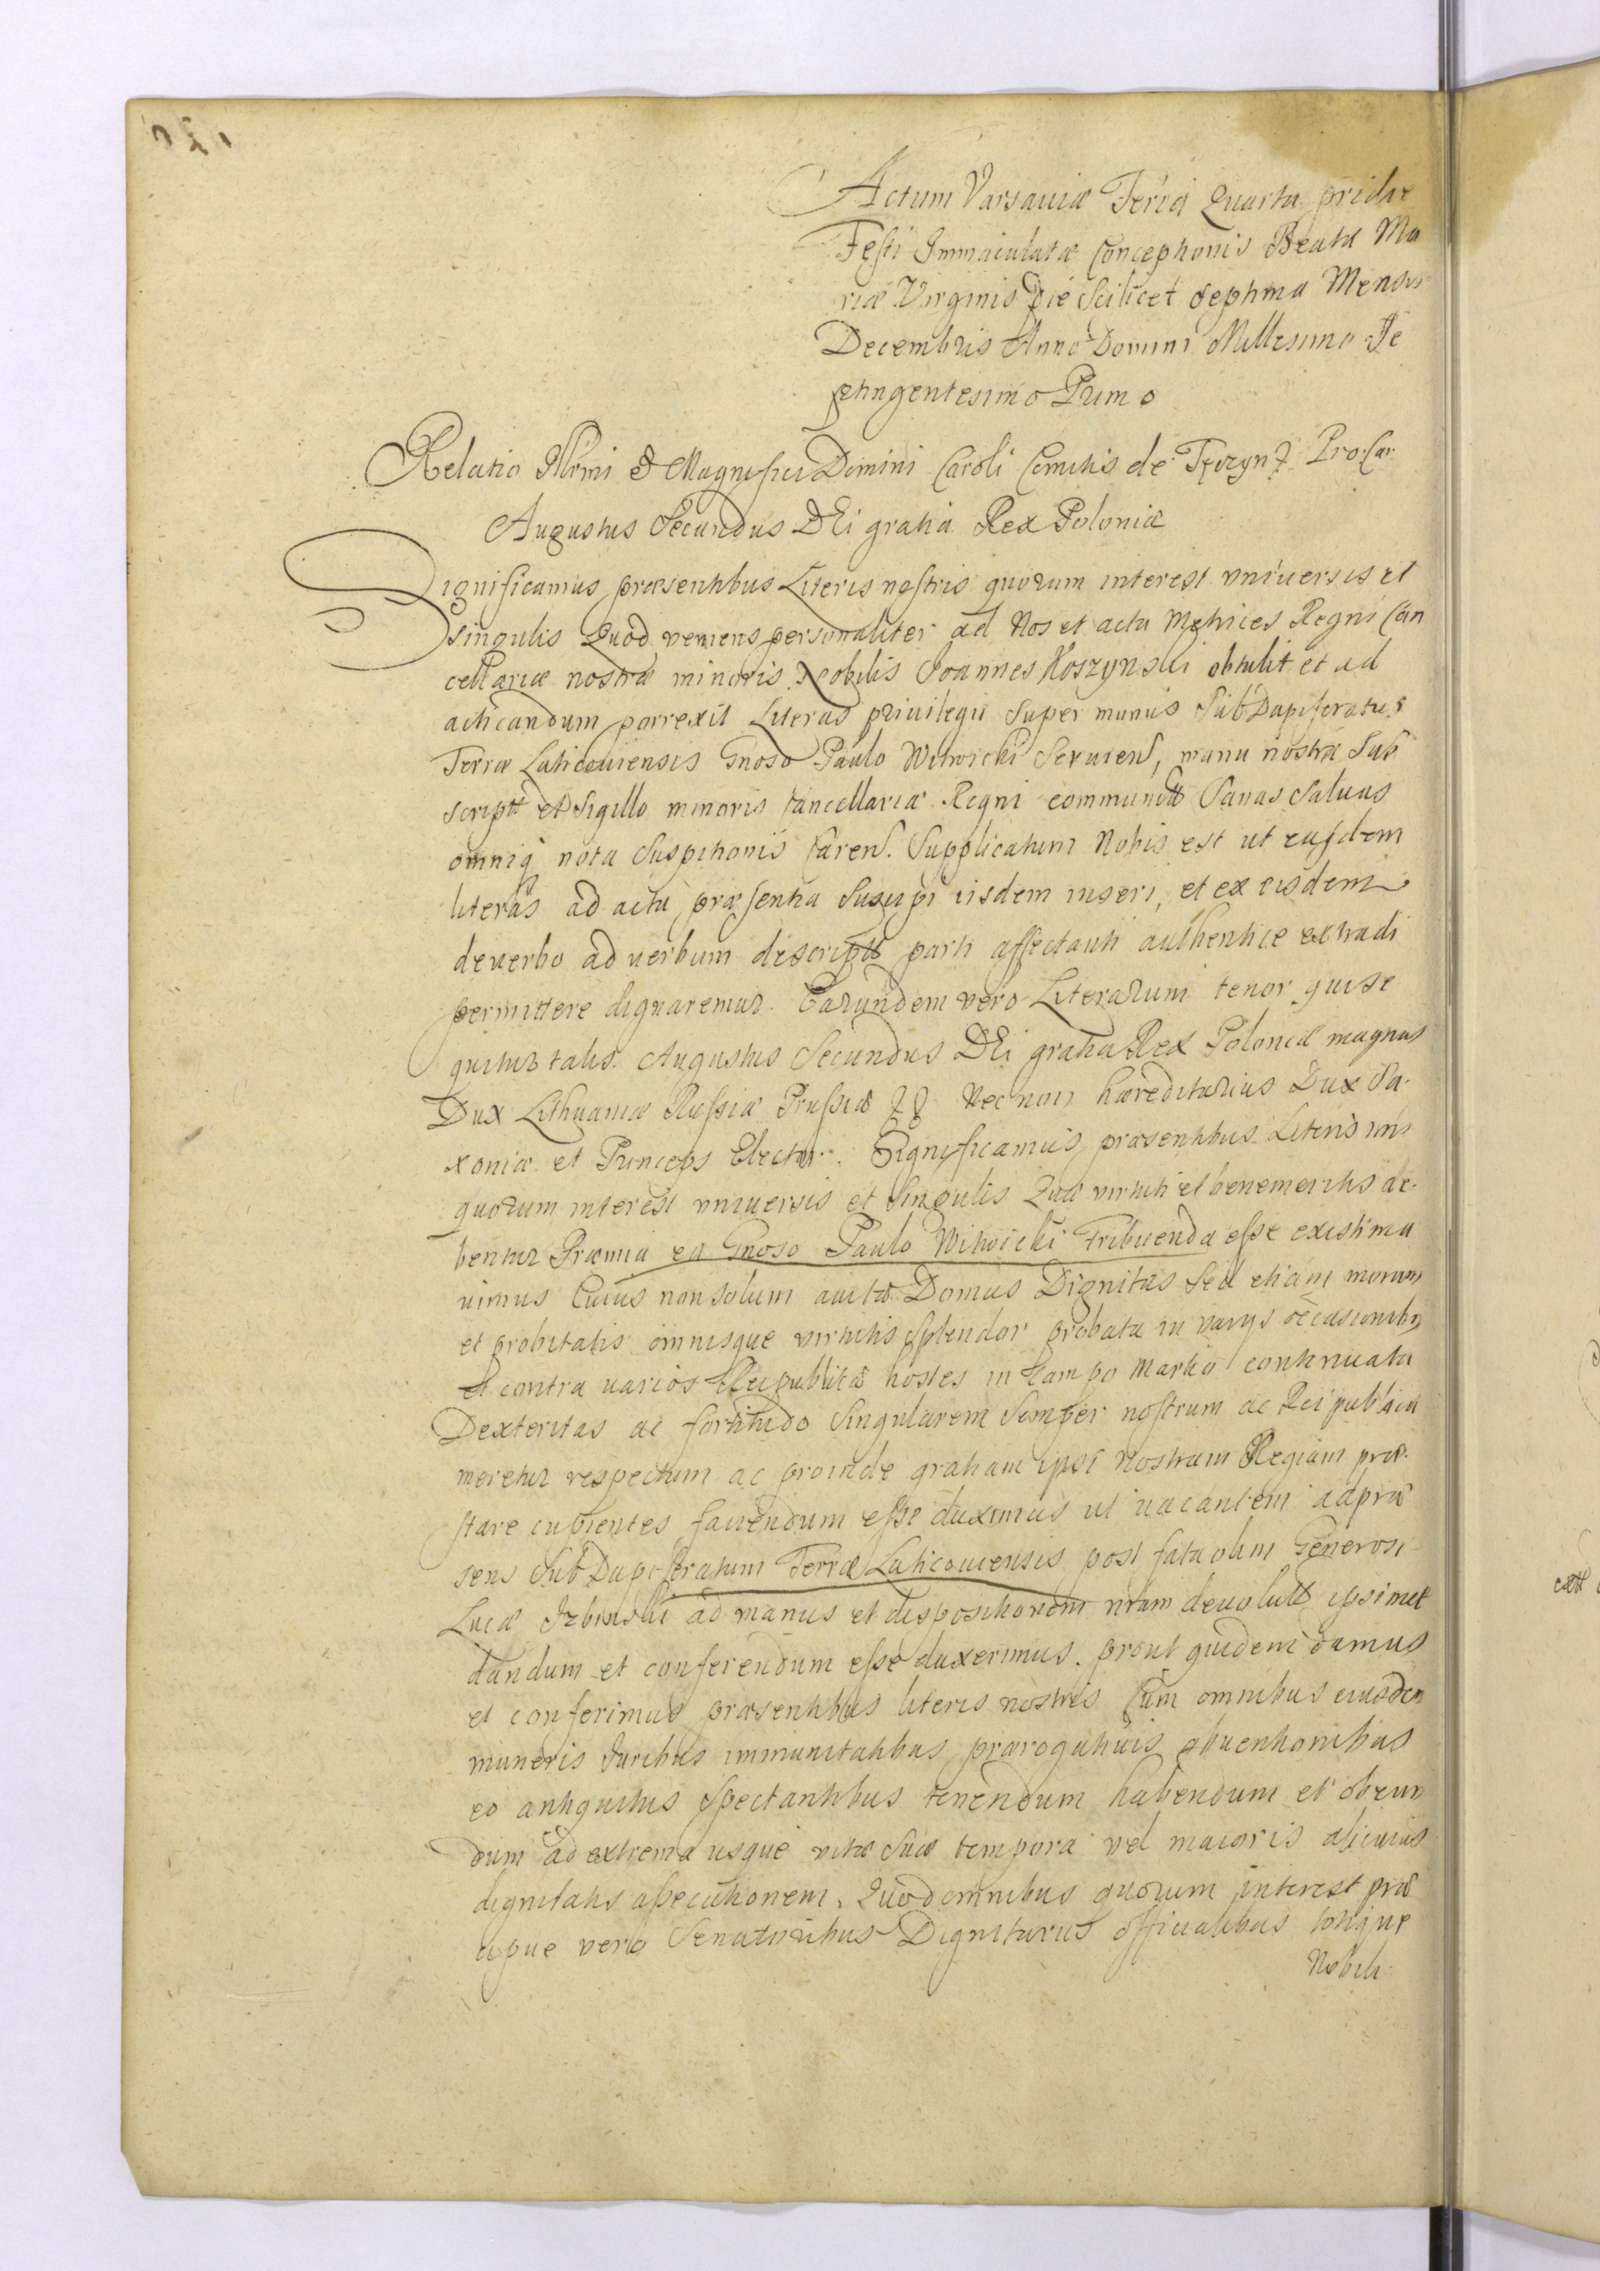 Actum Varsaviæ Feria Quarta pridie
Festi Immaculatæ Conceptionis Beatæ Ma
riæ Virginis Die Scilicet Septima Mensis
Decembris Anno Domini Millesimo Se
ptingentesimo Primo
Relatio Illrmi & Magnifici Domini Caroli Comitis de Tęczyn Pro.Can
Augustus Secundus DEi gratia Rex Poloniæ
Significamus præsentibus Literis nostris quorum interest vniuersis et
singulis Quod veniens personaliter ad Nos et acta Metrices Regni Can
cellariæ nostræ minoris Nobilis Joannes Koszynski obtulit et ad
acticandum porrexit Literas priuilegii Super munus SubDapiferatus
Terræ Laticouiensis Gnoso Paulo Witwicki Seruien, manu nostra Sub
script et Sigillo minoris Cancellariæ Regni communit Sanas Saluas
omniq nota Suspitionis Caren. Supplicatum Nobis est ut easdem
literas ad acta præsentia Suscipi iisdem inseri, et ex eisdem
deuerbo ad verbum descript parti affectanti authentice extradi
permittere dignaremur. Earundem vero Literarum tenor qui se
quitur talis. Augustus Secundus DEi gratia Rex Poloniæ magnus
Dux Lithuaniæ Russiæ Prussiæ Nec non hæreditarius Dux Sa.
xoniæ et Princeps Elector. Significamus præsentibus Literis nris
quorum interest vniuersis et Singulis Quæ virtuti et benemeritis de.
bentur Præmia ea Gnoso Paulo Witwicki Tribuenda esse existima
uimus Cuius non solum auita Domus Dignitas Sed etiam morum
et probitatis omnisque virtutis Splendor probata in varys occasionibus
Et contra uarios Reipublicæ hostes in Campo Martio continuata
Dexteritas ac fortitudo Singularem Semper nostrum ac Reipublicæ
meretur respectum ac proinde gratiam ipsi Nostram Regiam præ.
stare cupientes faciendum esse duximus ut uacantem ad præ
sens SubDapiferatum Terræ Laticouiensis post fata olim Generosi
Lucæ Izbinski ad manus et dispositionem nram deuolut ipsimet
dandum et conferendum esse duxerimus. prout quidem damus
et conferimus præsentibus literis nostris Cum omnibus eiusdem
muneris Juribus immunitatibus prærogatiuis obuentionibus
eo antiquitus Spectantibus tenendum habendum et obeun
dum ad extrema usque vitæ Suæ tempora vel maioris alicuius
dignitatis assecutionem. Quod omnibus quorum interest præ
cipue vero Senatoribus Dignitariis officialibus totique
Nobili